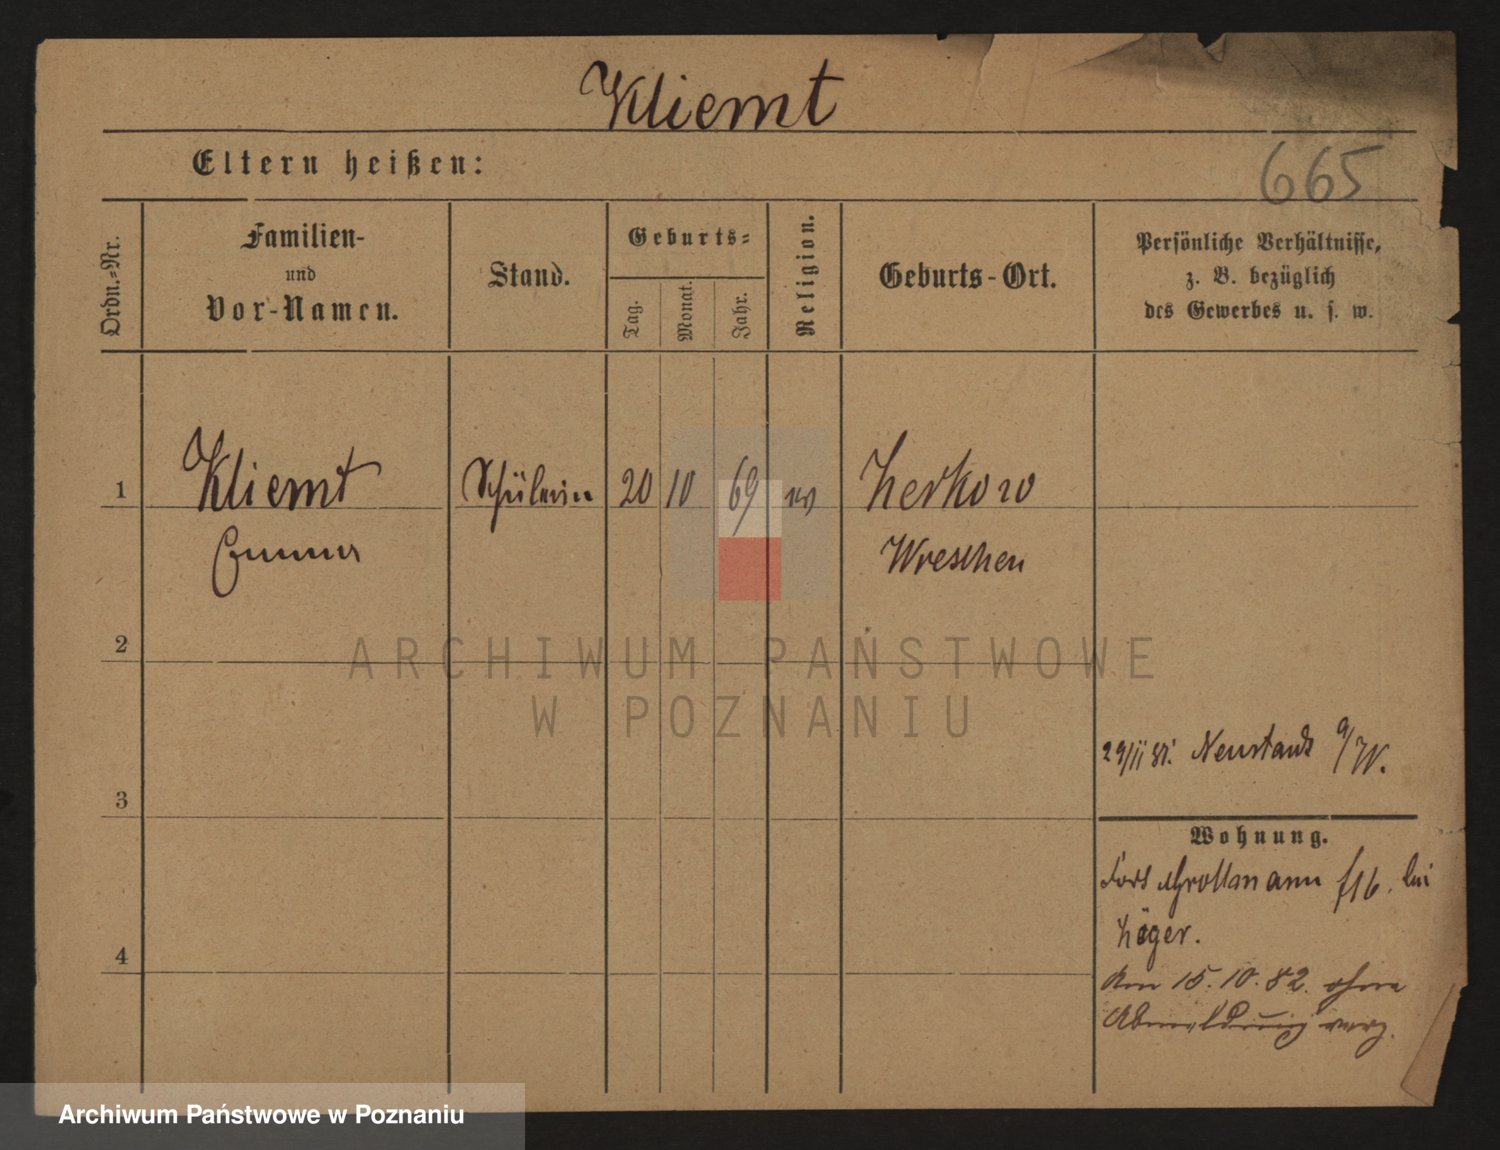 Kliemt
Eltern heißen:
665
Ordn.-Nr.
Familien-
und
Vor-Namen.
Stand.
Geburts-
Tag.
Monat.
Jahr.
Religion.
Geburts-Ort.
Persönliche Verhältnisse,
z. B. bezüglich
des Gewerbes u. s. w.
1
Kliemt
Emma
Schülerin
20
10
69
ev
Zerkow
Wreschen
2
ARCHIWUM PAŃSTWOWE
W POZNANIU
29/11 81. Neustadt a/W.
3
Wohnung.
Fort Grollmann f16. bei
Jäger.
4
Am 15.10.82. ohne
Abmeldung verz.
Archiwum Państwowe w Poznaniu